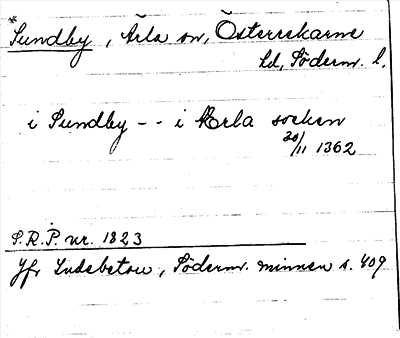 * Sundby, Ärla sn, Österrekarne
hd, Söderm. l.
i Sundby -- i Ærla socken
20/11 1362
S.R.P. nr. 1823
Jfr Södermr. minnen s. 409